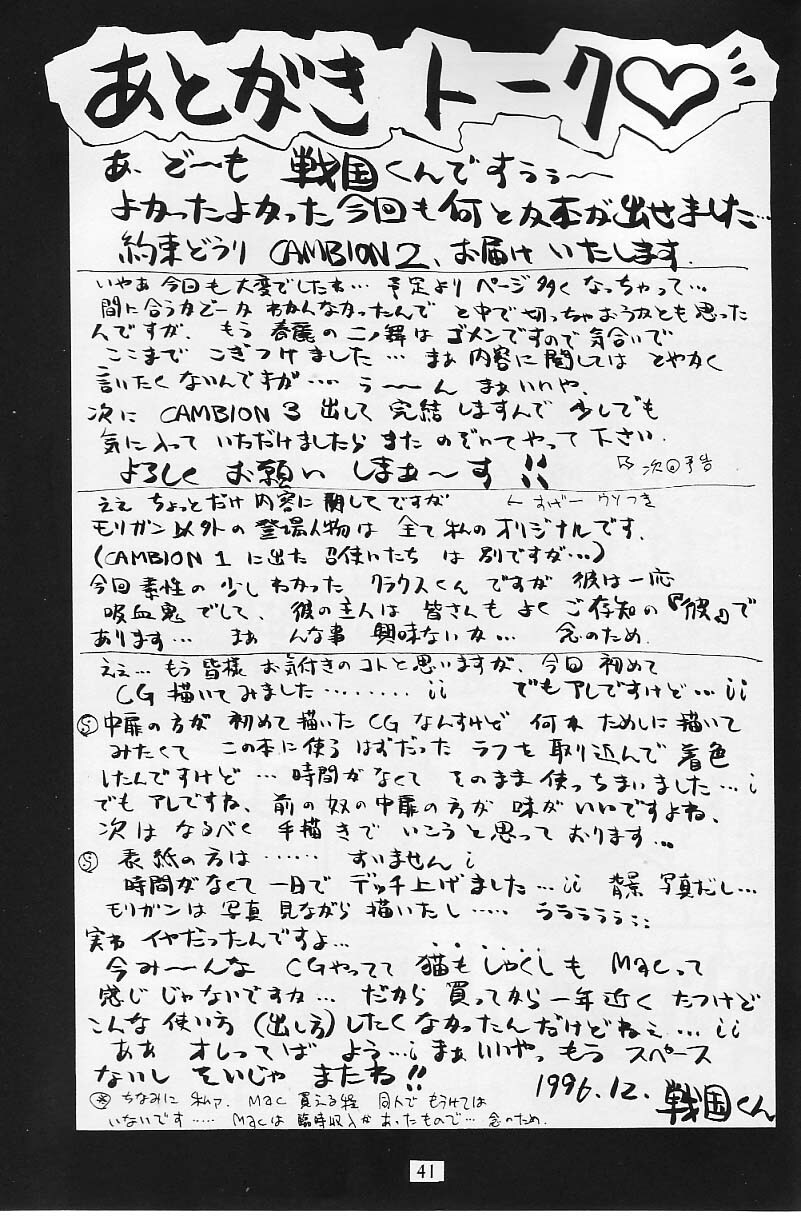 あとがきトーク♡
あ、ど〜も 戦国くんですぅぅ〜
よかったよかった今回も何とか本が出せました…
約束どうり CAMBION 2、お届けいたします.
いやぁ今回も大変でしたね… 予定より ページ多くなっちゃって…
間に合うかどーか わかんなかったんで と中で切っちゃおうかとも思った
んですが、もう 春麗の二ノ舞は ゴメンですので気合いで
ここまで こぎつけました… まぁ内容に関しては とやかく
言いたくないんですが…. う〜〜ん まぁいいや、
次に CAMBION 3 出して 完結しますんで 少しでも
気に入って いただけましたら また のぞいてやって下さい.
よろしく お願い しまぁ〜す!!
次回予告
ええ ちょっとだけ内容に関してですが
← すげー ウソつき
モリガン以外の登場人物は 全て私のオリジナルです.
(CAMBION 1 に出た 召使いたち は 別ですが…)
今回素性の 少しわかった クラウスくん ですが 彼は一応
吸血鬼でして、 彼の主人は 皆さんも よくご存知の『彼』で
あります… まぁ んな事 興味ないか… 念のため.
ええ… もう 皆様 お気付きのコトと思いますが、今回 初めて
CG 描いてみました……… ¡¡ でもアレですけど… ¡¡
Ⓢ 中扉の方が 初めて描いた CG なんすけど 何か ためしに描いて
みたくて この本に使う はずだった ラフを取り込んで 着色
したんですけど… 時間がなくて そのまま 使っちまいました… ¡
でも アレですね、前の奴の中扉の方が 味がいいですよね、
次は なるべく 手描きで いこうと思って おります…
Ⓢ 表紙の方は …… すいません ¡
時間がなくて 一日で デッチ上げました… ¡¡ 背景 写真だし…
モリガンは 写真 見ながら 描いたし ….. ううううう
実わ イヤだったんですよ…
今み〜んな CGやってて 猫もしゃくしも Macって
感じ じゃないですか… だから 買ってから 一年近く たつけど
こんな 使い方 (出し方) したくなかったんだけどねぇ… ¡¡
ああ オレってば よう…¡ まぁいいやっ もう スペース
ないし そいじゃ またね!!
1996.12. 戦国くん
※ ちなみに 私ァ、Mac 買える程 同人で もうけては
いないです….. Macは 臨時収入が あったもので… 念のため.
41